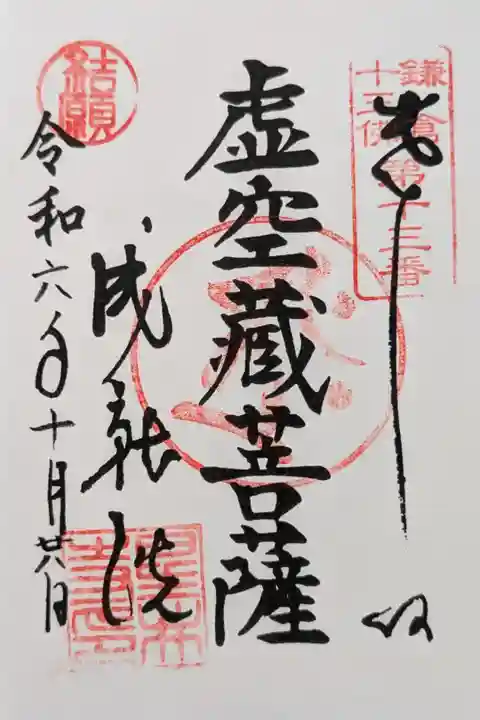 鎌倉
十三佛
第十三番
奉拝
虚空蔵菩薩
成就院
結願
令和六年十月廿八日